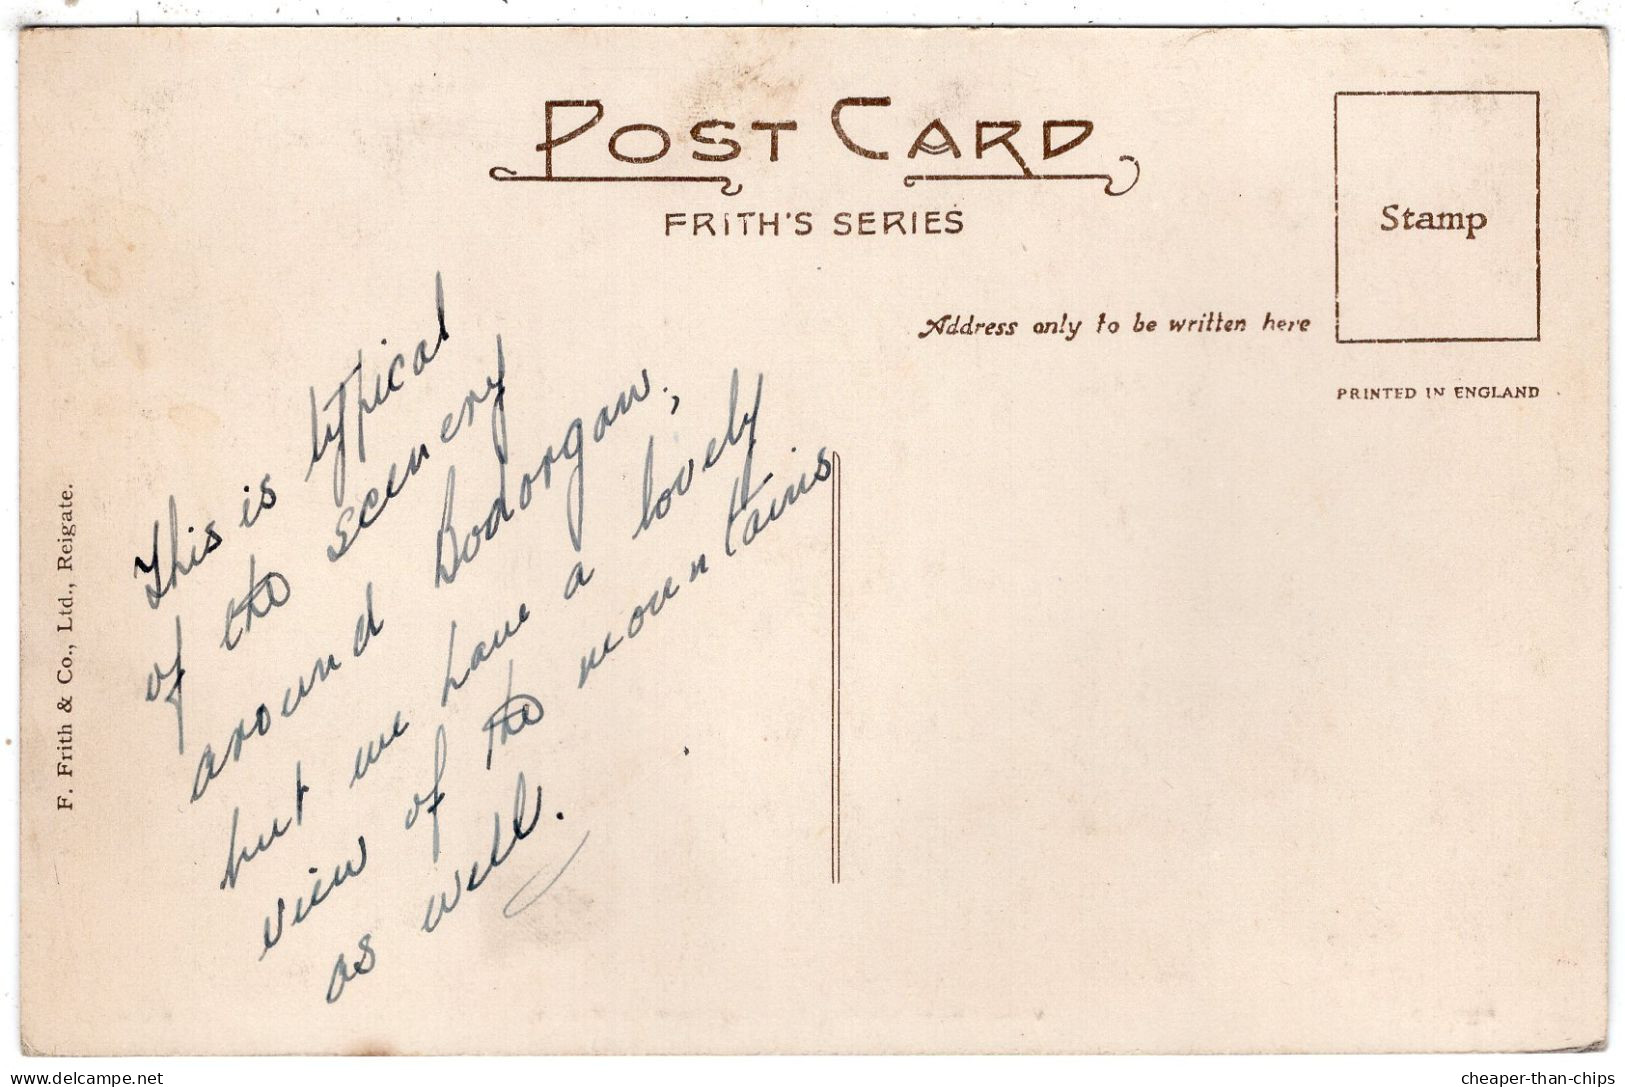 POST CARD
FRITH'S SERIES
Stamp
Address only to be written here
PRINTED IN ENGLAND
This is typical
of the scenery
around Bodorgan,
but we have a lovely
view of the mountains
as well.
F. Frith & Co., Ltd., Reigate.
delcampe.net
cheaper-than-chips